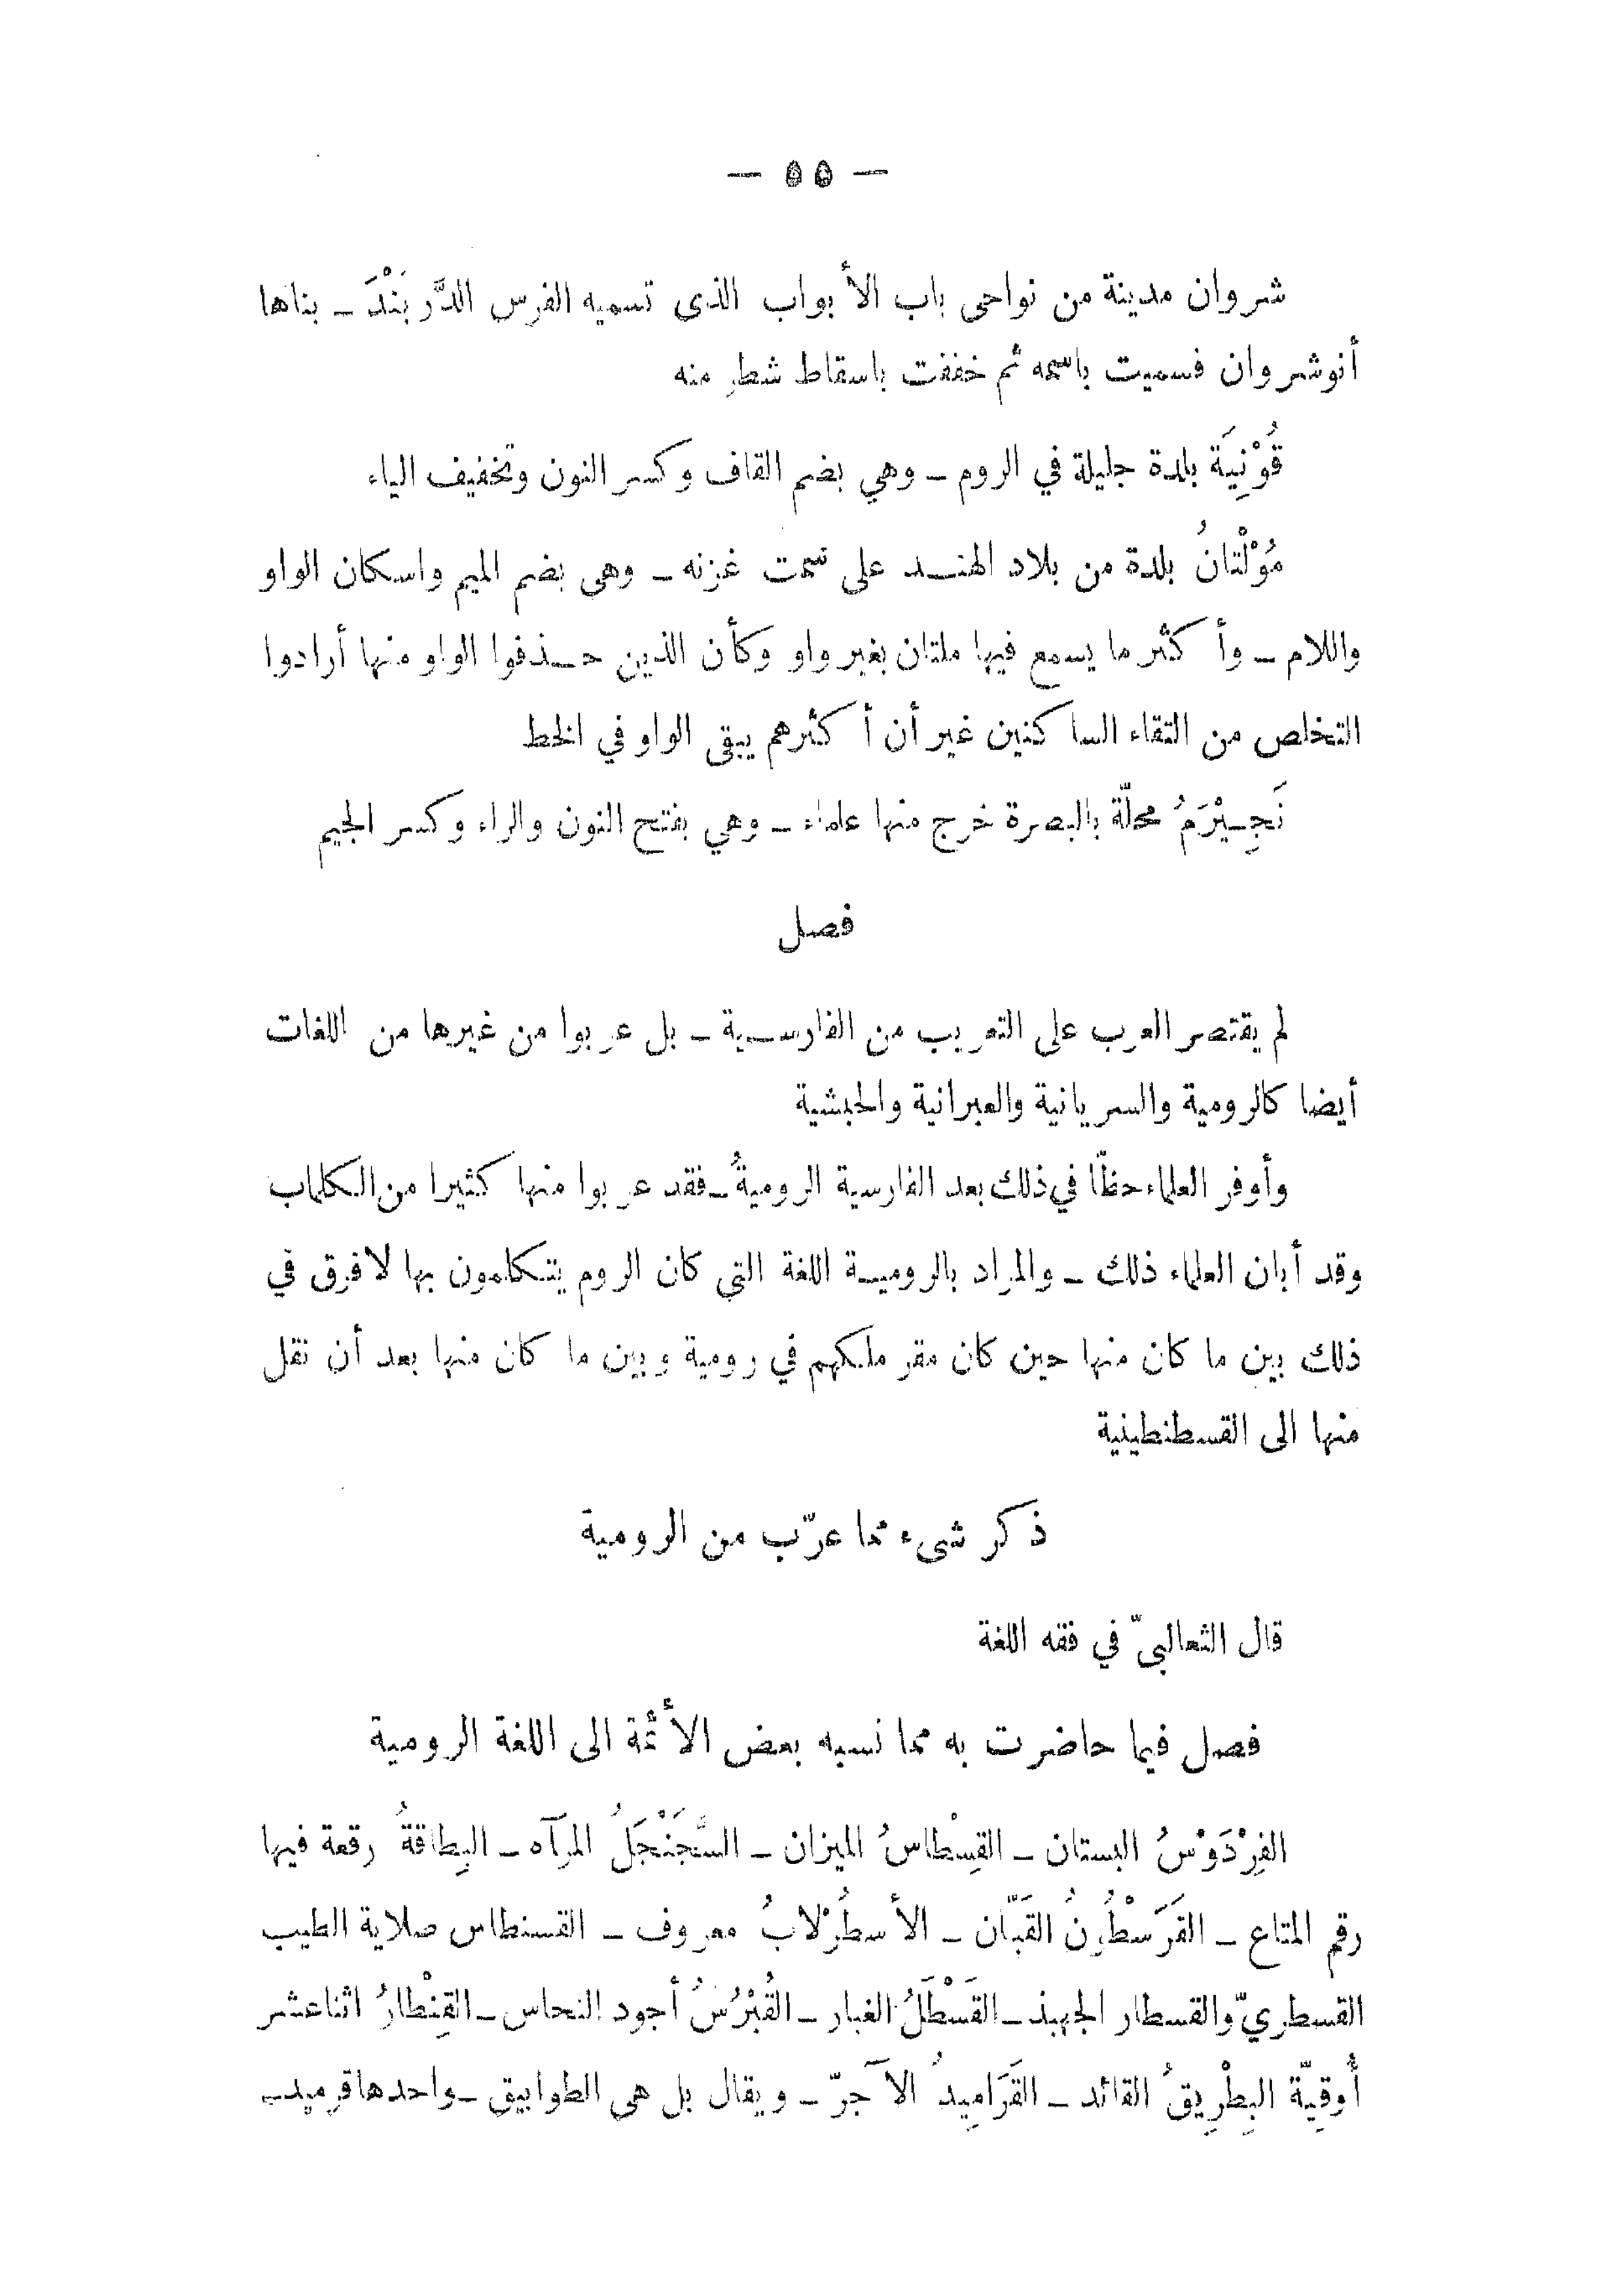 — ٥٥ —
شروان مدينة من نواحى باب الأبواب الذى تسميه الفرس الدَّربَنْدَ ـ بناها
أنوشروان فسميت باسمه ثم خففت باسقاط شطرِ منه
قُوْنِيَة بلدة جليلة في الروم ـ وهي بضم القاف وكسر النون وتخفيف الياء
مُوْلْتانُ بلدة من بلاد الهنـد على سمت غزنه ـ وهى بضم الميم واسكان الواو
واللام ـ وأكثر ما يسمع فيها ملتان بغير واو وكأن الذين حـذفوا الواو منها أرادوا
التخلص من التقاء الساكنين غير أن أكثرهم يبقى الواو في الخط
نَجِـيْرَمُ محلّة بالبصرة خرج منها علماء ـ وهي بفتح النون والراء وكسر الجيم
فصل
لم يقتصر العرب على التعريب من الفارسـية ـ بل عربوا من غيرها من اللغات
أيضا كالرومية والسريانية والعبرانية والحبشية
وأوفر العلماء حظّا في ذلك بعد الفارسية الروميةُ ـ فقد عربوا منها كثيرا من الكلماب
وقد أبان العلماء ذلك ـ والمراد بالروميـة اللغة التي كان الروم يتكلمون بها لا فرق في
ذلك بين ما كان منها حين كان مقر ملكهم في رومية وبين ما كان منها بعد أن نقل
منها الى القسطنطينية
ذكر شىء مما عرّب من الرومية
قال الثعالبىّ في فقه اللغة
فصل فيما حاضرت به مما نسبه بعض الأئمة الى اللغة الرومية
الفِرْدَوْسُ البستان ـ القِسْطاسُ الميزان ـ السَّجَنْجَلُ المرآه ـ البِطاقةُ رقعة فيها
رقم المتاع ـ القَرَسْطُرنُ القَبّان ـ الأسطُرْلابُ معروف ـ القسنطاس صلاية الطيب
القسطريّ والقسطار الجهبذ ـ القَسْطَلُ الغبار ـ القُبْرُسُ أجود النحاس ـ القِنْطارُ اثنا عشر
أُوقِيّة البِطْرِيقُ القائد ـ القَرَامِيدُ الآجرّ ـ ويقال بل هى الطوابيق ـ واحدها قرميد ـ